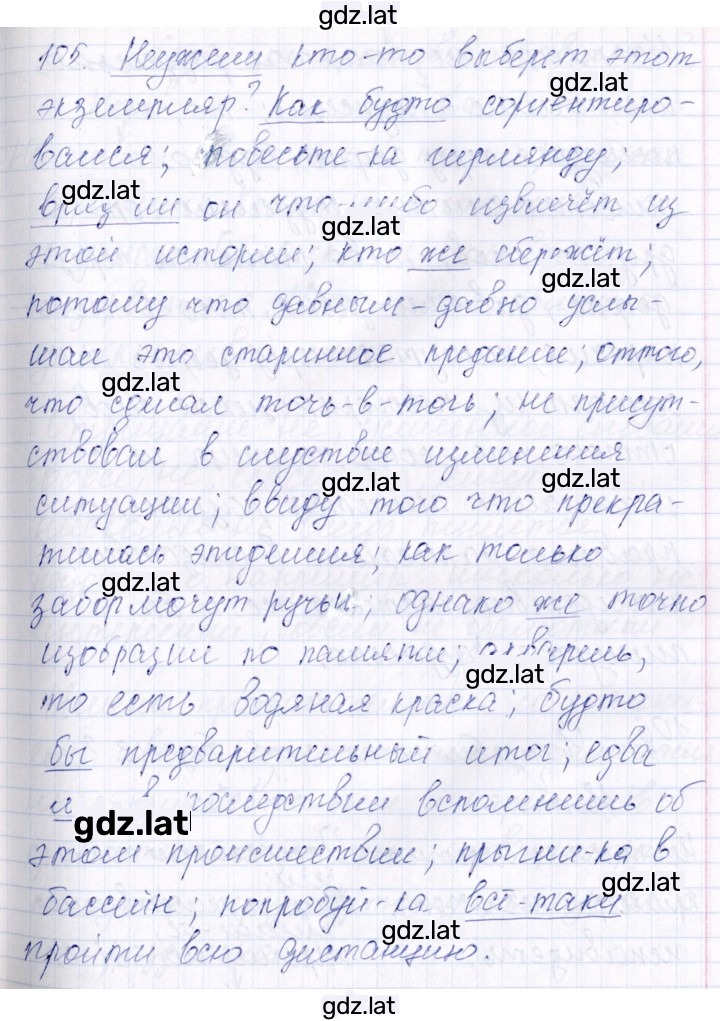 gdz.lat
105. Неужели кто-то выберет этот
gdz.lat
экземпляр? Как будто сориентиро-
вался; повесьте-ка гирлянду;
gdz.lat
вряд ли он что- извлечёт из
gdz.lat
этой истории; кто же сбережёт;
gdz.lat
потому что давным-давно услы-
шал это старинное предание; оттого,
gdz.lat
что сделал точь-в-точь; не присут-
ствовал в следствие изменения
gdz.lat gdz.lat
ситуации; ввиду того что прекра-
тилась эпидемия; как только
gdz.lat
забормочут ручьи; однако же точно
изобразил по памяти;
gdz.lat
то есть водяная краска; будто
бы предварительный итог; едва
вспомнишь об
gdz.lat
этом происшествии; прыгни-ка в
gdz.lat
бассейн; попробуй-ка всё-таки
gdz.lat
пройти всю дистанцию.
gdz.lat